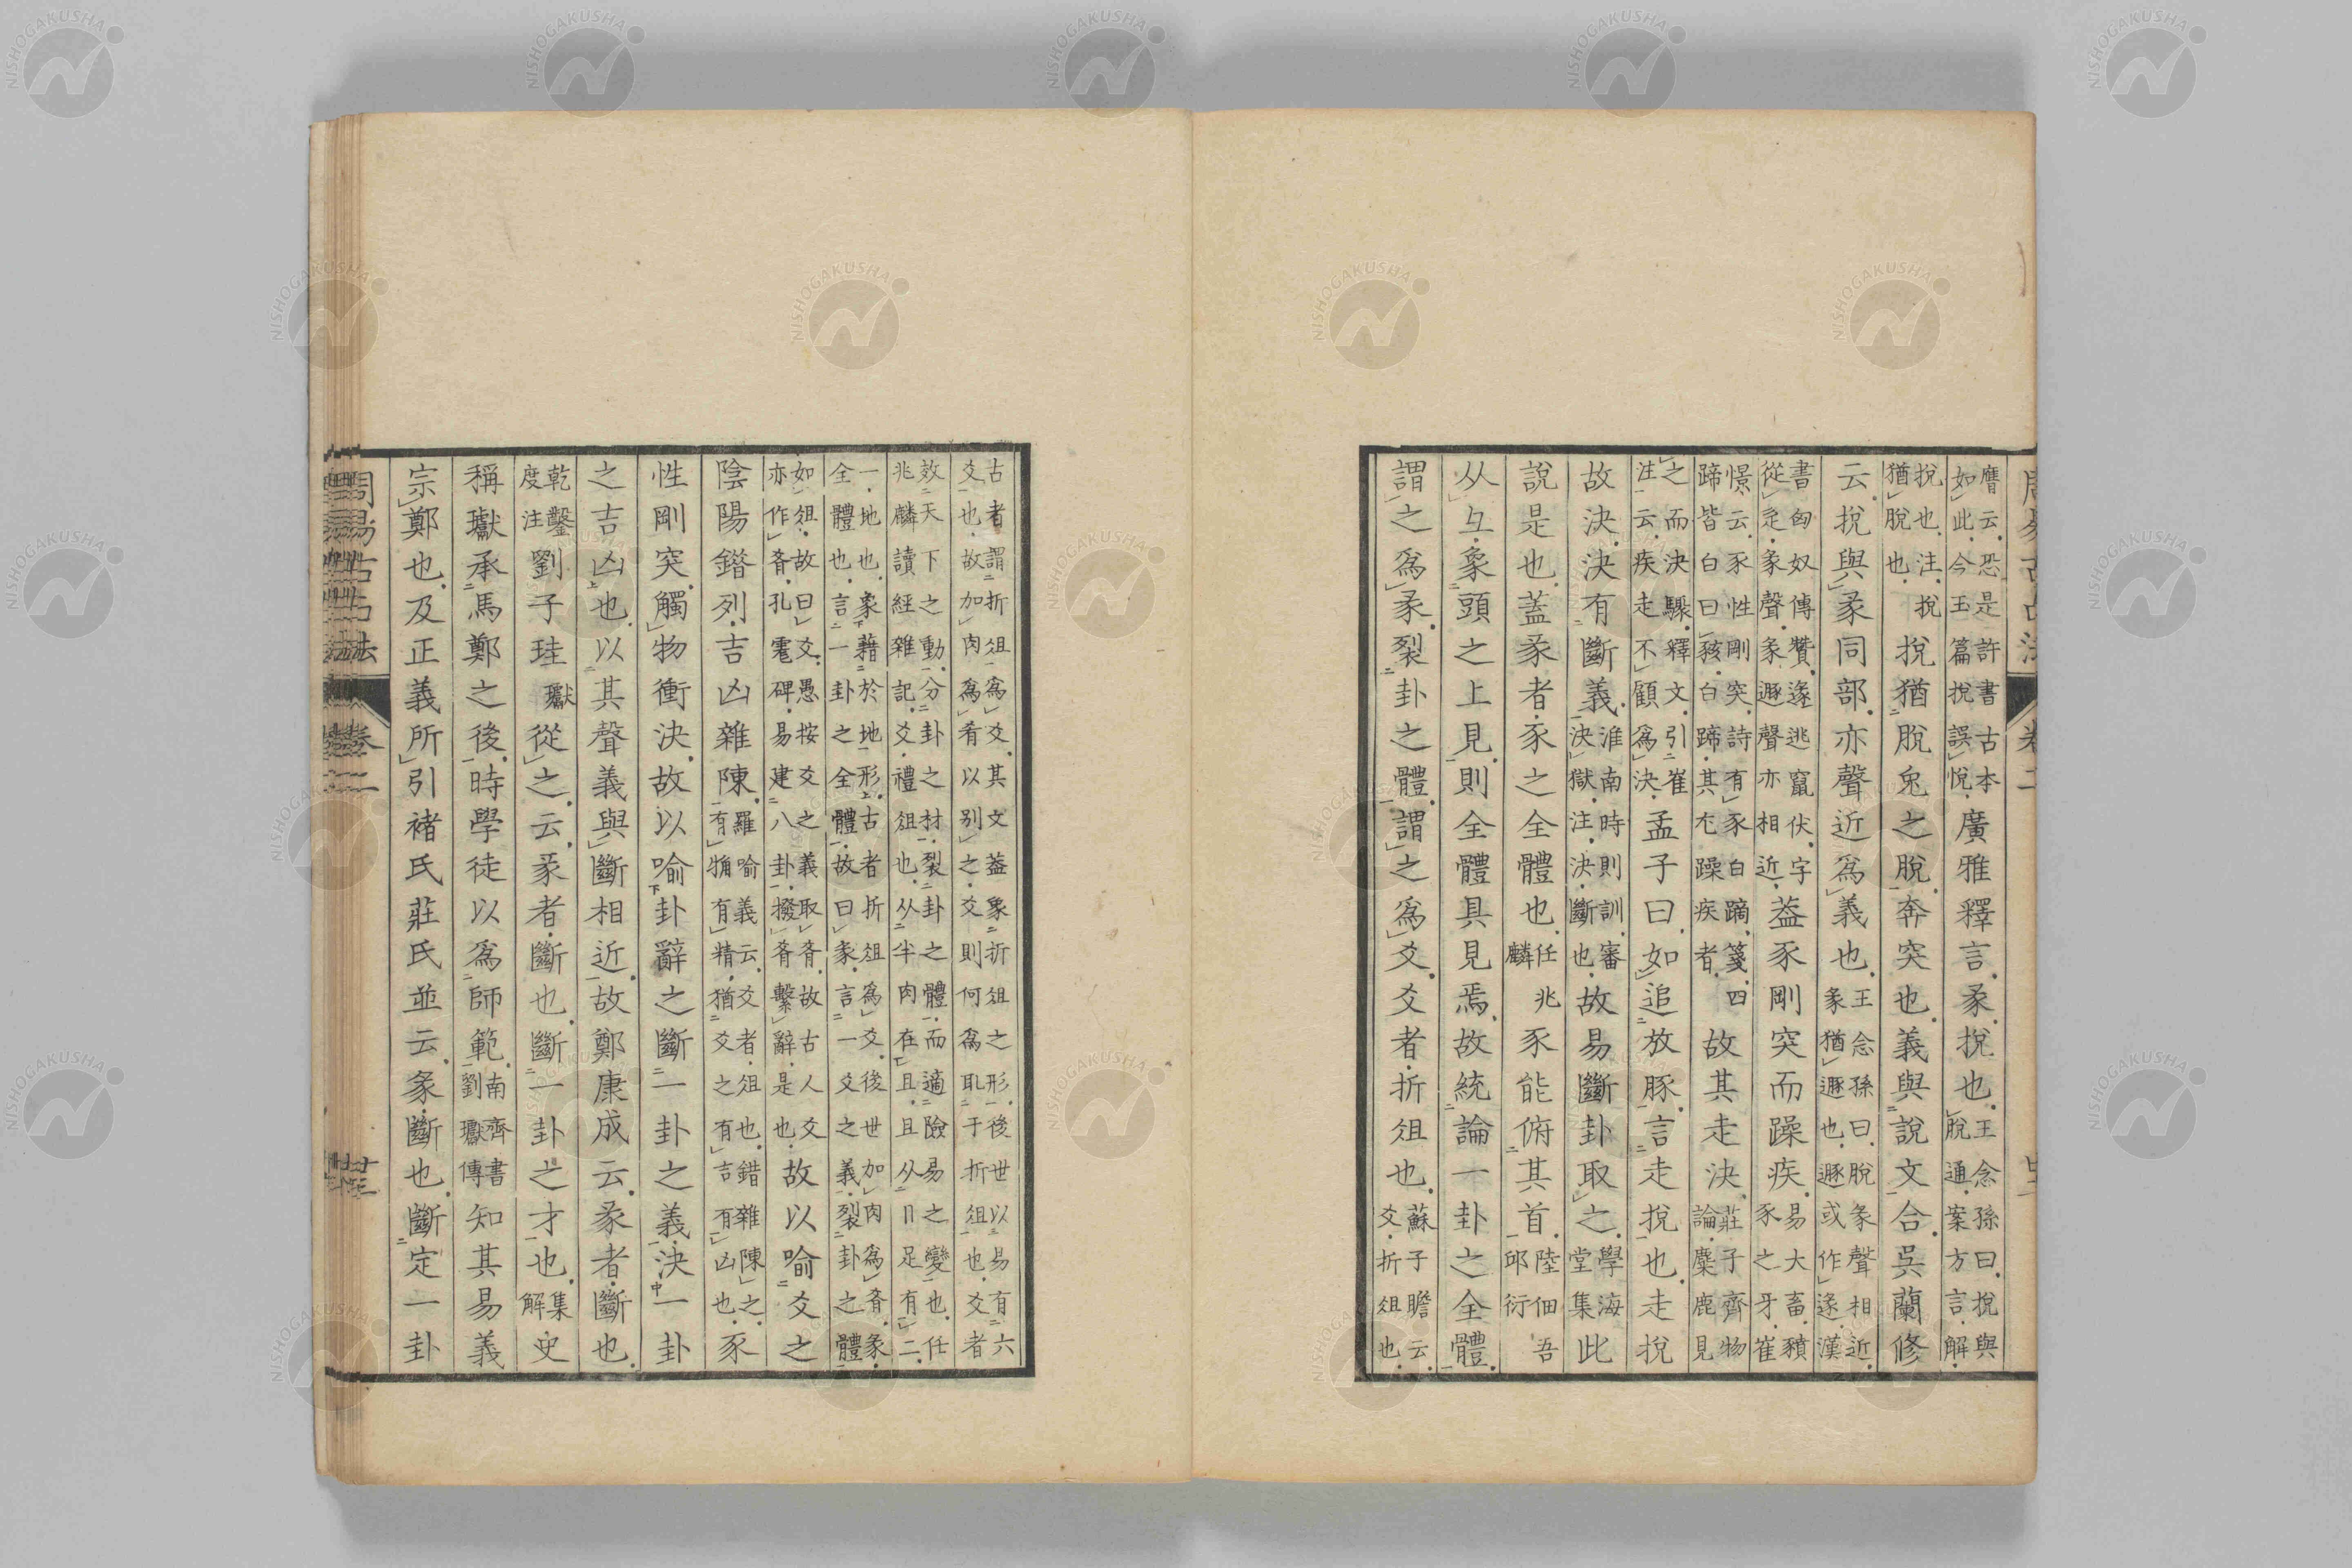 膺云恐是許書古本如此今玉篇捝誤悅廣雅釋言彖捝也王念孫曰捝與脫通案方言解
捝也注捝猶脫也捝猶脫兔之脫奔突也義與說文合吳蘭修
云捝與彖同部亦聲近爲義也王念孫曰脫彖聲相近彖猶遯也遯或作遂漢
書匈奴傳贊遂逃竄伏字從辵彖聲彖遯聲亦相近蓋豕剛突而躁疾易大畜豶豕之牙崔
憬云豕性剛突詩有豕白蹢箋四蹄皆白曰豥白蹄其尤躁疾者故其走決莊子齊物論麋鹿見
之而決驟釋文引崔注云疾走不顧爲決孟子曰如追放豚言走捝也走捝
故決決有斷義淮南時則訓審決獄注決斷也故易斷卦取之學海堂集此
說是也蓋彖者豕之全體也任兆麟豕能俯其首陸佃吾邱衍
从彑象頭之上見則全體具見焉故統論一卦之全體
謂之爲彖裂卦之體謂之爲爻爻者折俎也蘇子瞻云爻折俎也
古者謂折俎爲爻其文蓋象折俎之形後世以易有六爻也故加肉爲肴以別之爻則何爲取于折俎也爻者
效天下之動分卦之材裂卦之體而適險易之變也任兆麟讀經雜記爻禮俎也从半肉在且上且从目足有二
一地也象藉於地形古者折俎爲爻後世加肉爲肴彖全體也言一卦之全體故曰彖言一爻之義裂卦之體
如俎故曰爻愚按爻之義取肴故古人爻亦作肴孔碑易建八卦撥肴繫辭是也故以喻爻之
陰陽錯列吉凶雜陳羅喻義云爻者俎也錯雜陳之有觕有精猶爻之有吉有凶也豕
性剛突觸物衝決故以喻卦辭之斷一卦之義決一卦
之吉凶也以其聲義與斷相近故鄭康成云彖者斷也
乾鑿度注劉子珪瓛從之云彖者斷也斷一卦之才也集解史
稱瓛承馬鄭之後時學徒以爲師範南齊書劉瓛傳知其易義
宗鄭也及正義所引褚氏莊氏並云彖斷也斷定一卦
周易古占法 卷二